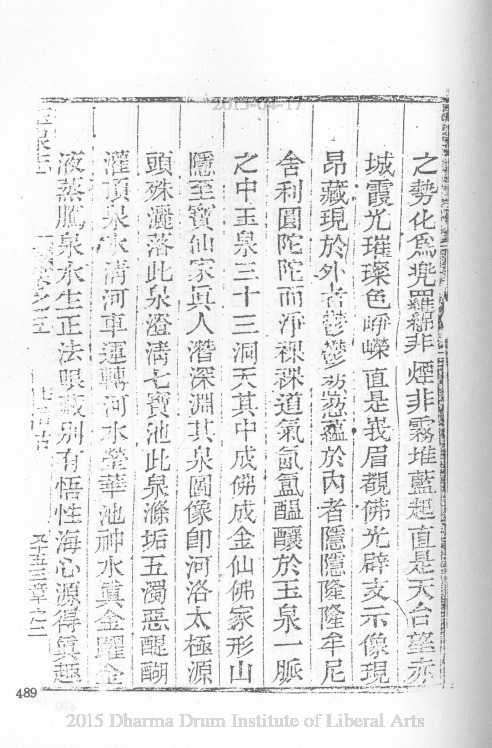 2015-04-17
之勢化爲兜羅綿非煙非霧堆藍起直是天台望赤
城霞光璀璨色崢嶸直是峩眉覩佛光辟支示像現
昂藏現於外者鬱鬱葱葱蘊於內者隱隱隆隆牟尼
舍利圓陀陀而淨裸裸道氣氤氳醞釀於玉泉一脈
之中玉泉三十三洞天其中成佛成金仙佛家形山
隱至寶仙家眞人潛深淵其泉圖像卽河洛太極源
頭殊灑落此泉澄淸七寶池此泉滌垢五濁惡醍醐
灌頂泉水淸河車運轉河水瑩華池神水眞金躍金
液蒸騰泉水生正法眼藏別有悟性海心源得眞趣
玉泉志 卷之五 又十五三章之二
489
2015 Dharma Drum Institute of Liberal Arts